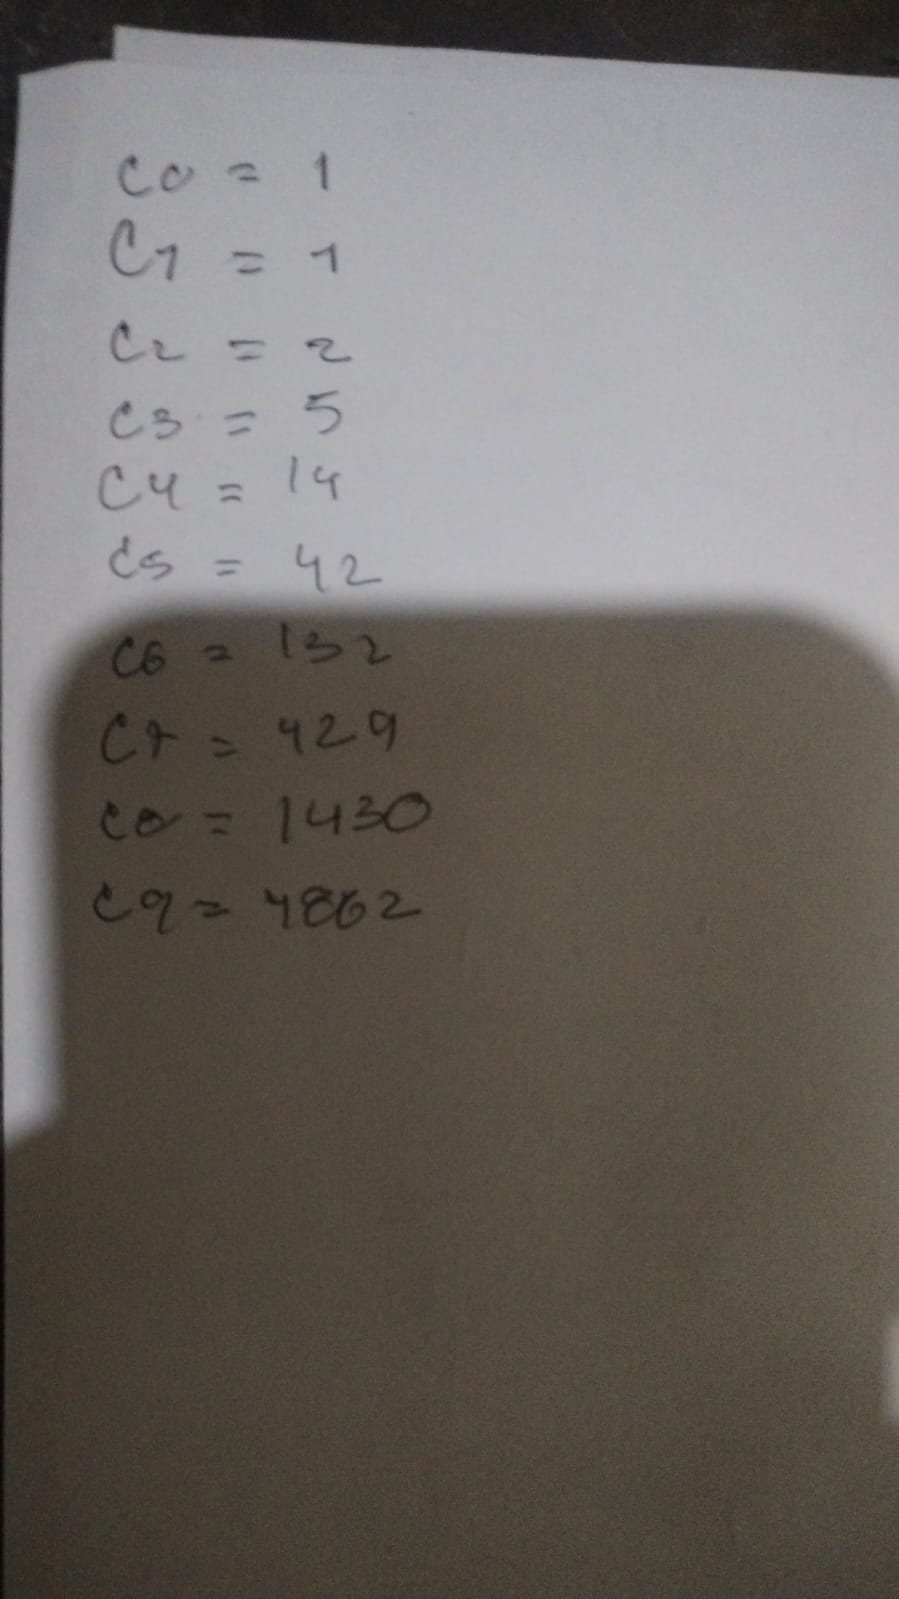 C0 = 1
C1 = 1
C2 = 2
C3 = 5
C4 = 14
C5 = 42
C6 = 132
C7 = 429
C8 = 1430
C9 = 4862